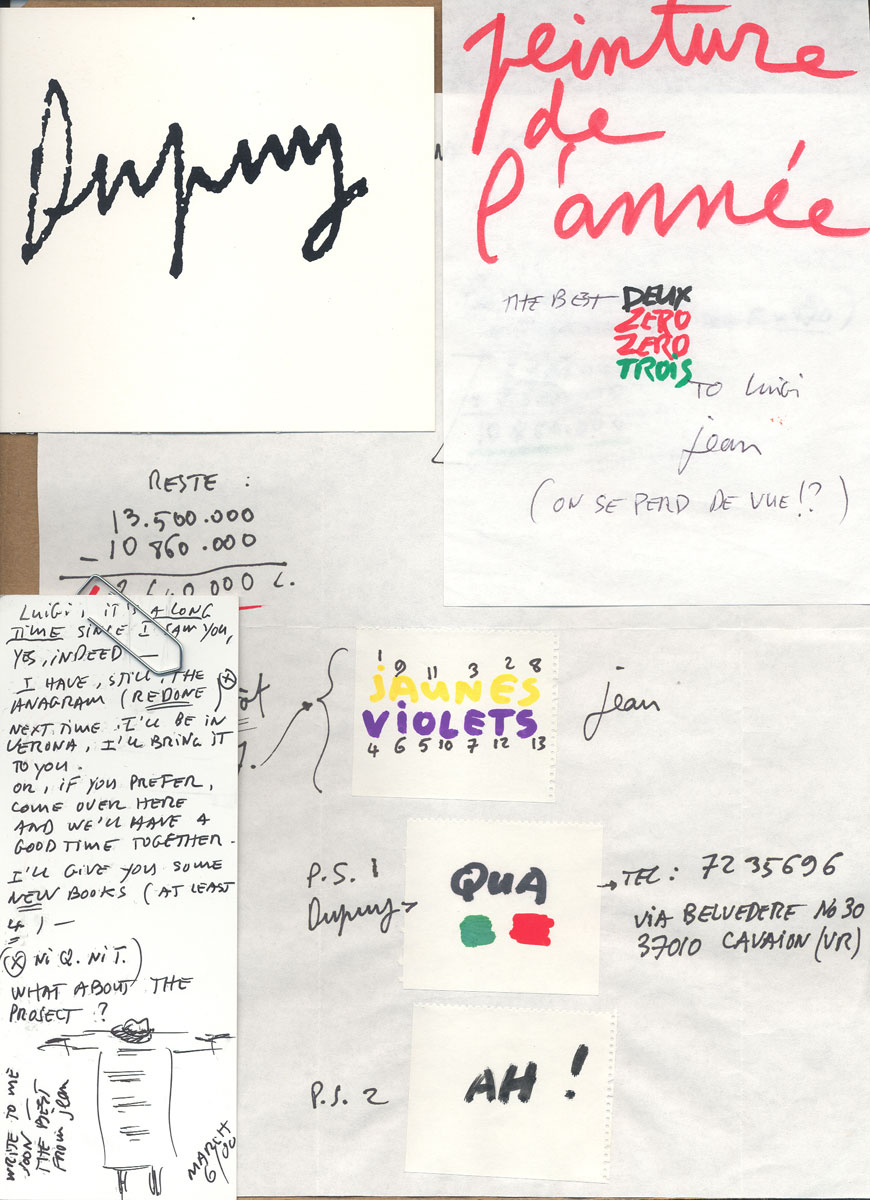 Dupuy
peinture
de
l'année
THE BEST DEUX
ZERO
ZERO
TROIS
TO LUIGI
jean
(ON SE PERD DE VUE!?)
RESTE :
13.500.000
- 10 860.000
000 L.
LUIGI, IT'S A LONG
TIME SINCE I SAW YOU,
YES, INDEED —
I HAVE, STILL, THE
ANAGRAM (REDONE) ⊗
NEXT TIME, I'LL BE IN
VERONA, I'LL BRING IT
TO YOU.
OR, IF YOU PREFER,
COME OVER HERE
AND WE'LL HAVE A
GOOD TIME TOGETHER.
I'LL GIVE YOU SOME
NEW BOOKS (AT LEAST
4) —
(⊗ Ni Q. Ni T.)
WHAT ABOUT THE
PROJECT ?
WRITE TO ME
SOON —
THE BEST
FROM jean
MARCH
6/00
1 9 11 3 2 8
JAUNES
VIOLETS
4 6 5 10 7 12 13
jean
P.S. 1
Dupuy >
QUA
→ TEL : 7235696
VIA BELVEDERE No 30
37010 CAVAION (VR)
P.S. 2
AH !